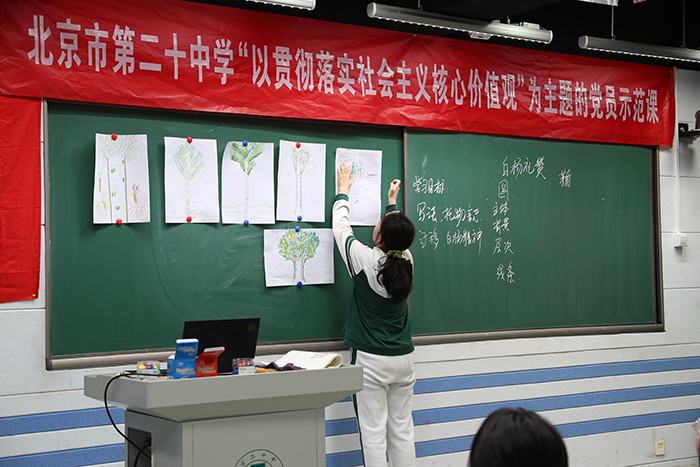 北京市第二十中学“以贯彻落实社会主义核心价值观”为主题的党员示范课
白杨礼赞
学习目标
图
主体
背景
层次
线条
写法 托物言志
白杨精神